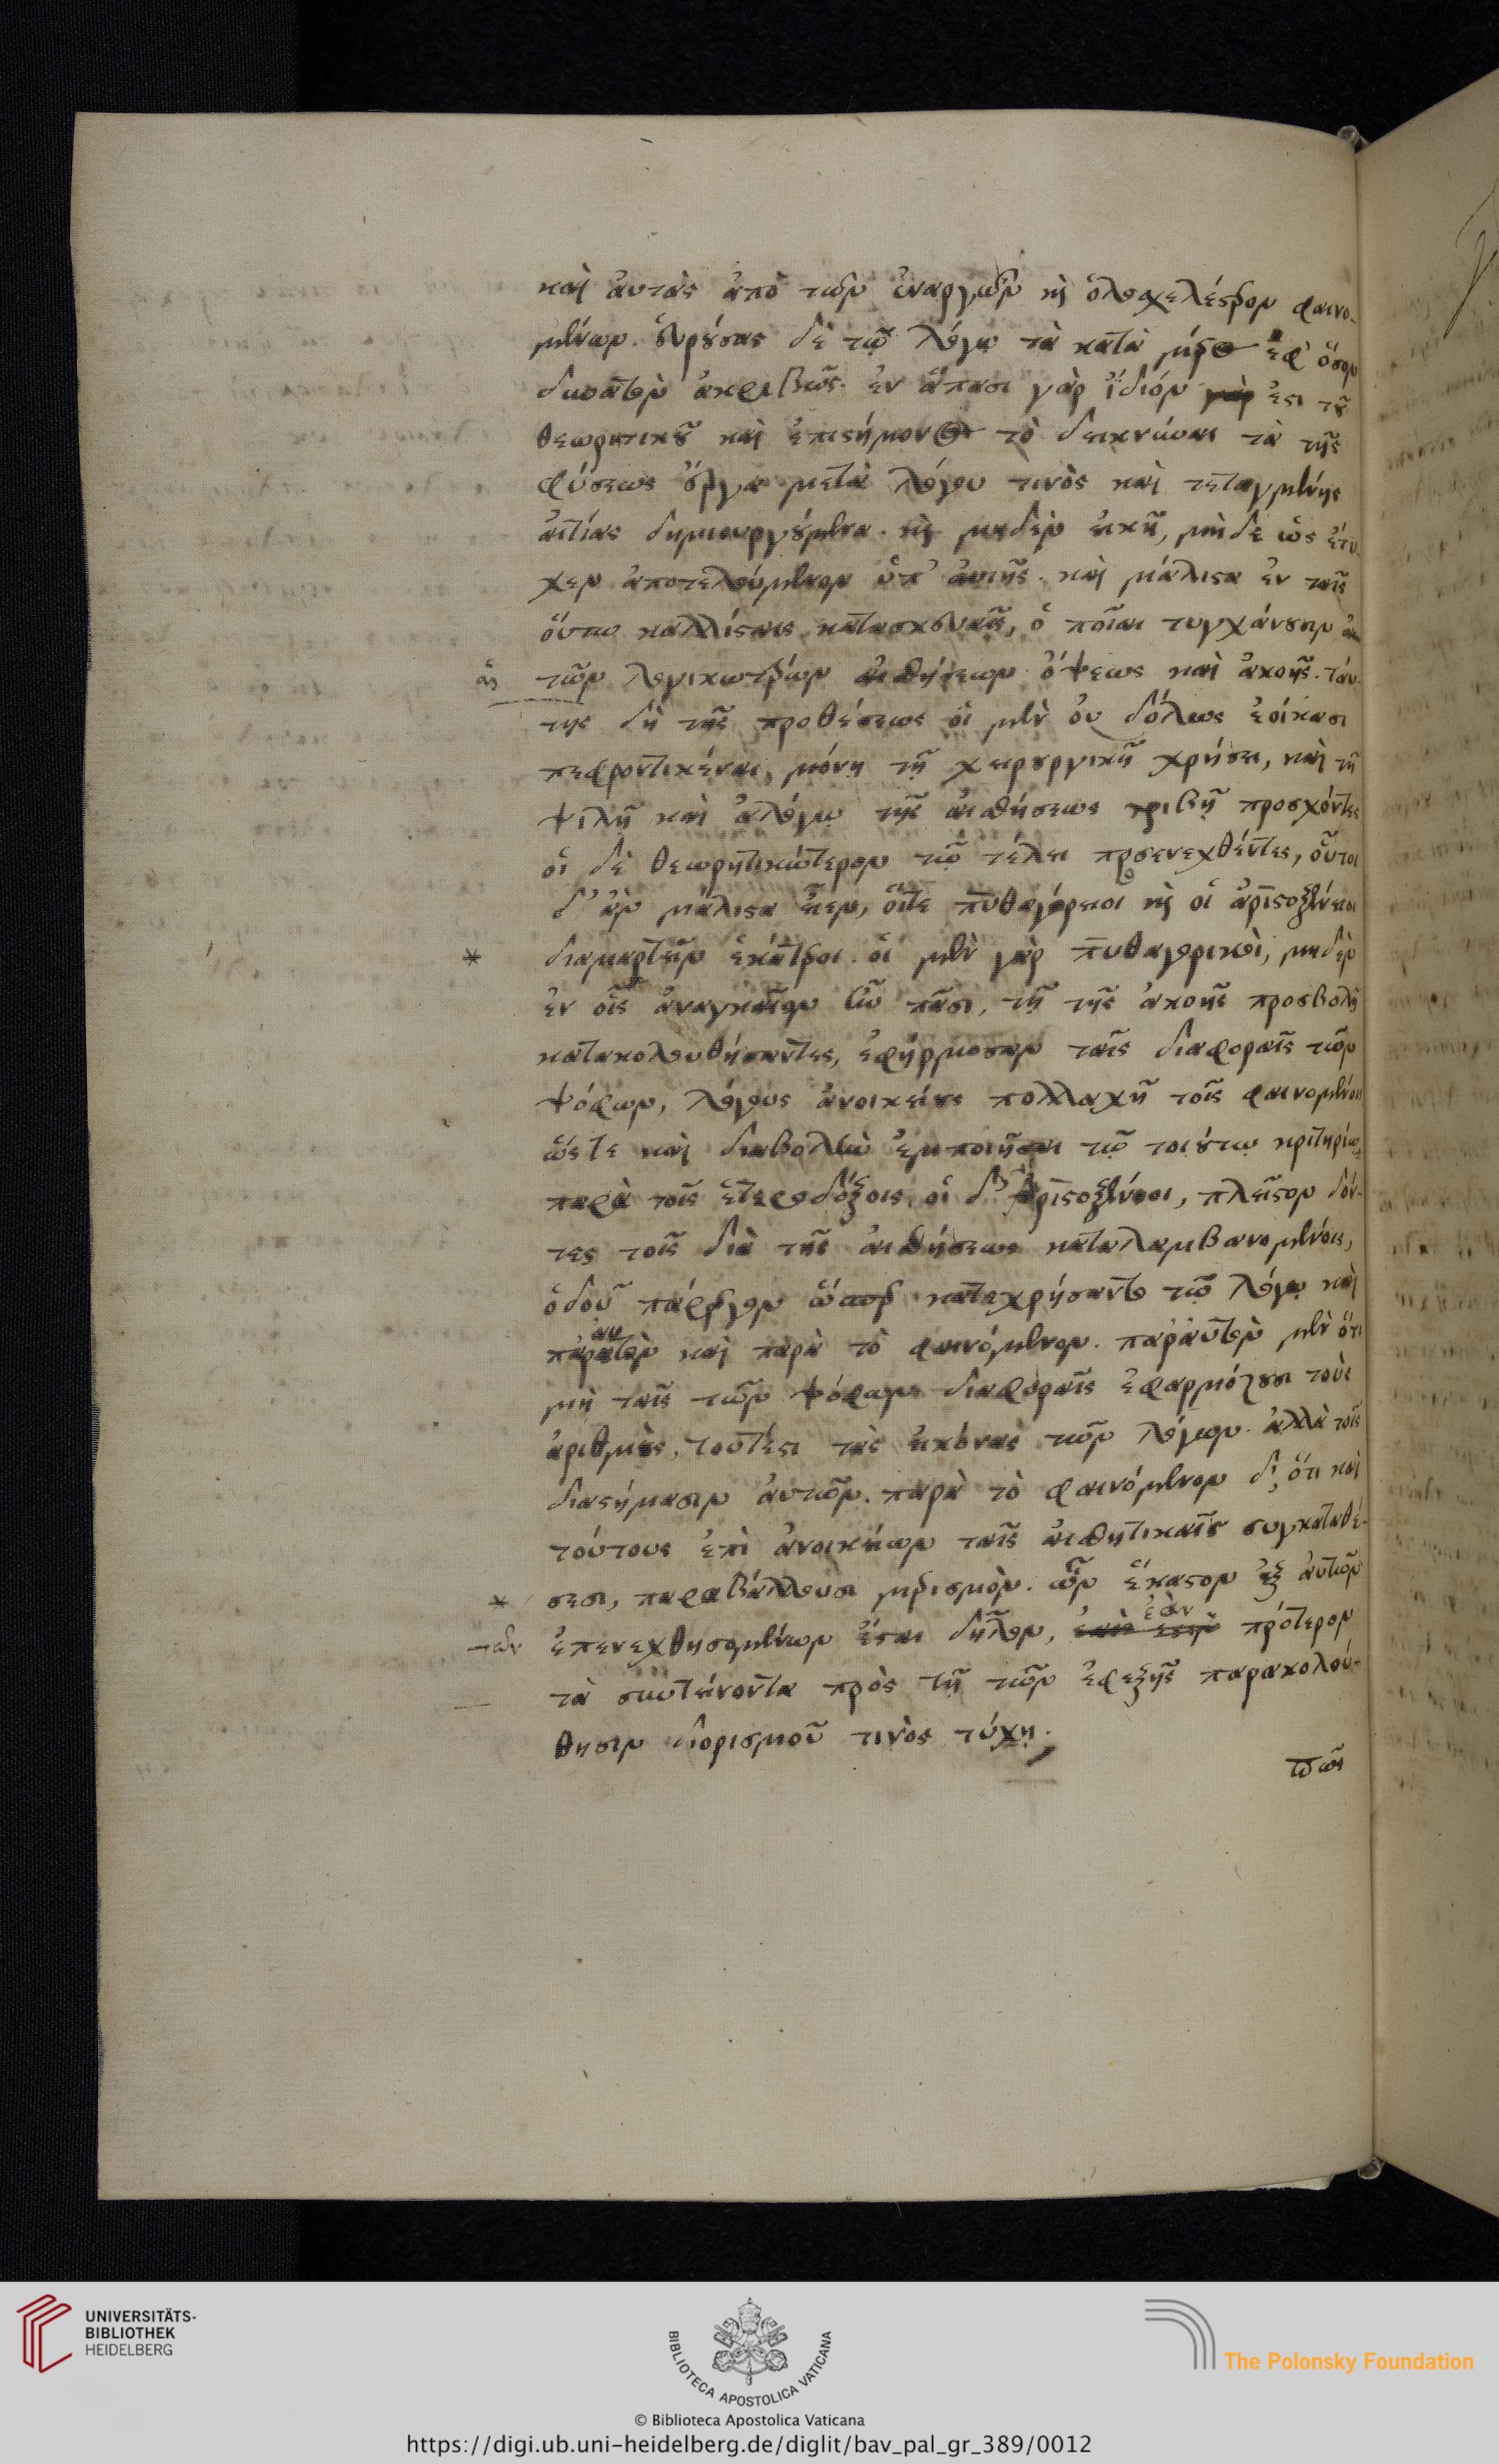 καὶ ἀυτὰς ἀπὸ τῶν ἐναργῶν κὶ ὁλοσχελέστερον φαινο-
μένων. ἑυρούσας δὲ τῷ λόγῳ τὰ κατὰ μέρος ἐφ' ὅσον
δυνατὸν ἀκριβῶς. ἐν ἅπασι γὰρ ἴδιόν ἐστι τοῦ
θεωρητικοῦ καὶ ἐπιστήμονος τὸ δεικνύναι τὰ τῆς
φύσεως ἔργα μετὰ λόγου τινὸς καὶ τεταγμένης
ἀιτίας δημιουργούμενα. κὶ μηδὲν εἰκῆ, μηδὲ ὡς ἔτυ-
χεν ἀποτελούμενον ὑπ' ἀυτῆς. καὶ μάλιστα ἐν ταῖς
ὅυτω καλλίσταις κατασκευαῖς, ὁ ποῖαι τυγχάνουσιν
ἁι τῶν λογικωτέρων ἀισθήσεων ὄψεως καὶ ἀκοῆς. τάυ-
της δὴ τῆς προθέσεως ὁι μὲν ὀυ δόλως ἐοίκασι
πεφροντικέναι, μόνῃ τῇ χειρουργικῇ χρήσει, καὶ τῇ
ψιλῇ καὶ ἀλόγῳ τῆς ἀισθήσεως τριβῇ προσχόντες
ὁι δὲ θεωρητικώτερον τῷ τέλει προσενεχθέντες, οὗτοι
δ' ἂν μάλιστα εἶεν, ὅιτε πυθαγόρειοι κὶ οἱ ἀριστοξένειοι
* διαμαρτεῖν ἑκάτεροι. ὁι μὲν γὰρ πυθαγορικοὶ, μηδὲν
ἐν οἷς ἀναγκαῖον ἦν πᾶσι, τῇ τῆς ἀκοῆς προσβολῇ
κατακολουθήσαντες, ἐφήρμοσαν ταῖς διαφοραῖς τῶν
ψόφων, λόγους ἀνοικείους πολλαχῆ τοῖς φαινομένοις
ὥστε καὶ διαβολὴν ἐμποιῆσαι τῷ τοιούτῳ κριτηρίῳ
παρὰ τοῖς ἑτεροδόξοις. οἱ δ' ἀριστοξένειοι, πλεῖστον δόν-
τες τοῖς διὰ τῆς ἀισθήσεως καταλαμβανομένοις,
ὁδοῦ πάρεργον ὥσπερ κατεχρήσαντο τῷ λόγῳ καὶ
παραυτὸν καὶ παρὰ τὸ φαινόμενον. παραυτὸν μὲν ὅτι
μὴ ταῖς τῶν ψόφων διαφοραῖς ἐφαρμόζουσι τοὺς
ἀριθμοὺς, τουτέστι τὰς εἰκόνας τῶν λόγων. ἀλλὰ τοῖς
διαστήμασιν ἀυτῶν. παρὰ τὸ φαινόμενον δὲ, ὅτι καὶ
τούτους ἐπὶ ἀνοικείων ταῖς ἀισθητικαῖς συγκαταθέ-
* σεσι, παραβάλλουσι μερισμὸν. ὧν ἕκαστον ἐξ ἀυτῶν
τῶν ἐπενεχθησομένων ἔσται δῆλον, ἐὰν πρότερον
τὰ συντείνοντα πρὸς τὴν τῶν ἐφεξῆς παρακολού-
θησιν διορισμοῦ τινὸς τύχῃ.
πῶς
UNIVERSITÄTS-
BIBLIOTHEK
HEIDELBERG
BIBLIOTECA APOSTOLICA VATICANA
The Polonsky Foundation
© Biblioteca Apostolica Vaticana
https://digi.ub.uni-heidelberg.de/diglit/bav_pal_gr_389/0012